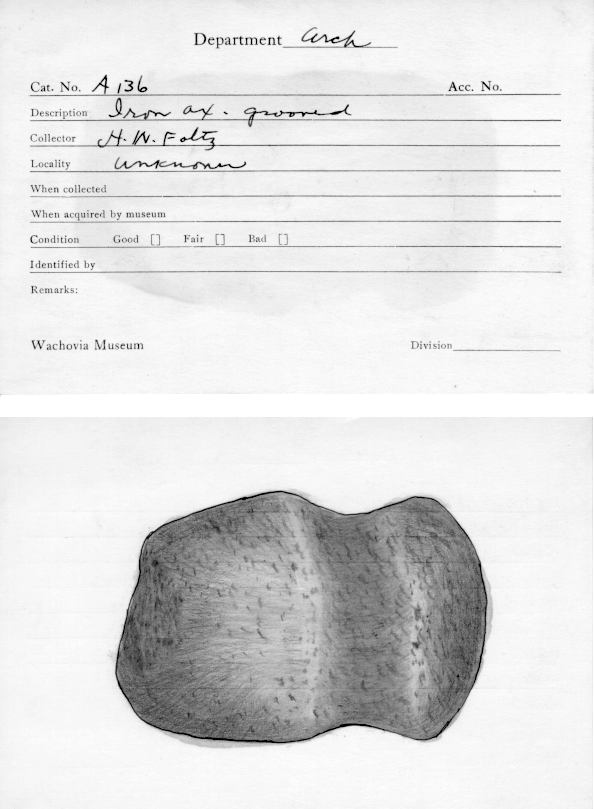 Department Arch
Cat. No. A 136 Acc. No.
Description Iron ax. grooved
Collector H. W. Foltz
Locality unknown
When collected
When acquired by museum
Condition Good [] Fair [] Bad []
Identified by
Remarks:
Wachovia Museum Division